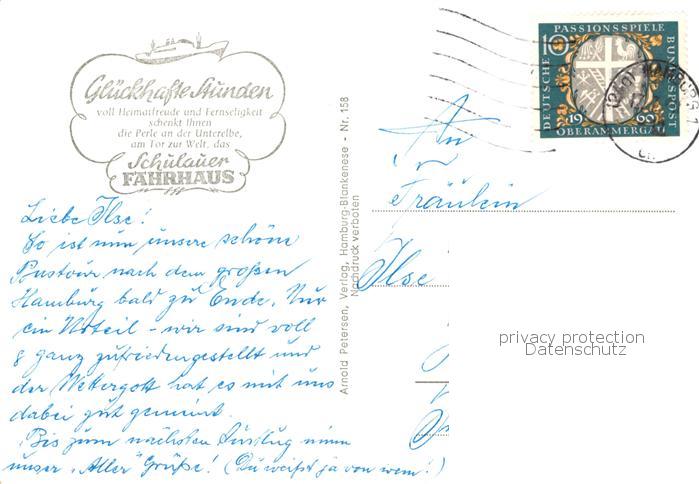 Glückhafte Stunden
voll Heimatfreude und Fernseligkeit
schenkt Ihnen
die Perle an der Unterelbe,
am Tor zur Welt, das
Schulauer
FÄHRHAUS
Liebe Ilse!
So ist nun unsere schöne
Bustour nach dem großen
Hamburg bald zu Ende. Nur
ein Urteil - wir sind voll
& ganz zufriedengestellt und
der Wettergott hat es mit uns
dabei gut gemeint.
Bis zum nächsten Ausflug nimm
unser "Aller" Grüße! (Du weißt ja von wem!)
Arnold Petersen, Verlag, Hamburg-Blankenese - Nr. 158
Nachdruck verboten
DEUTSCHE
PASSIONSSPIELE
BUNDESPOST
10
1960
OBERAMMERGAU
HAMBURG 1
An
Fräulein
Ilse
privacy protection
Datenschutz